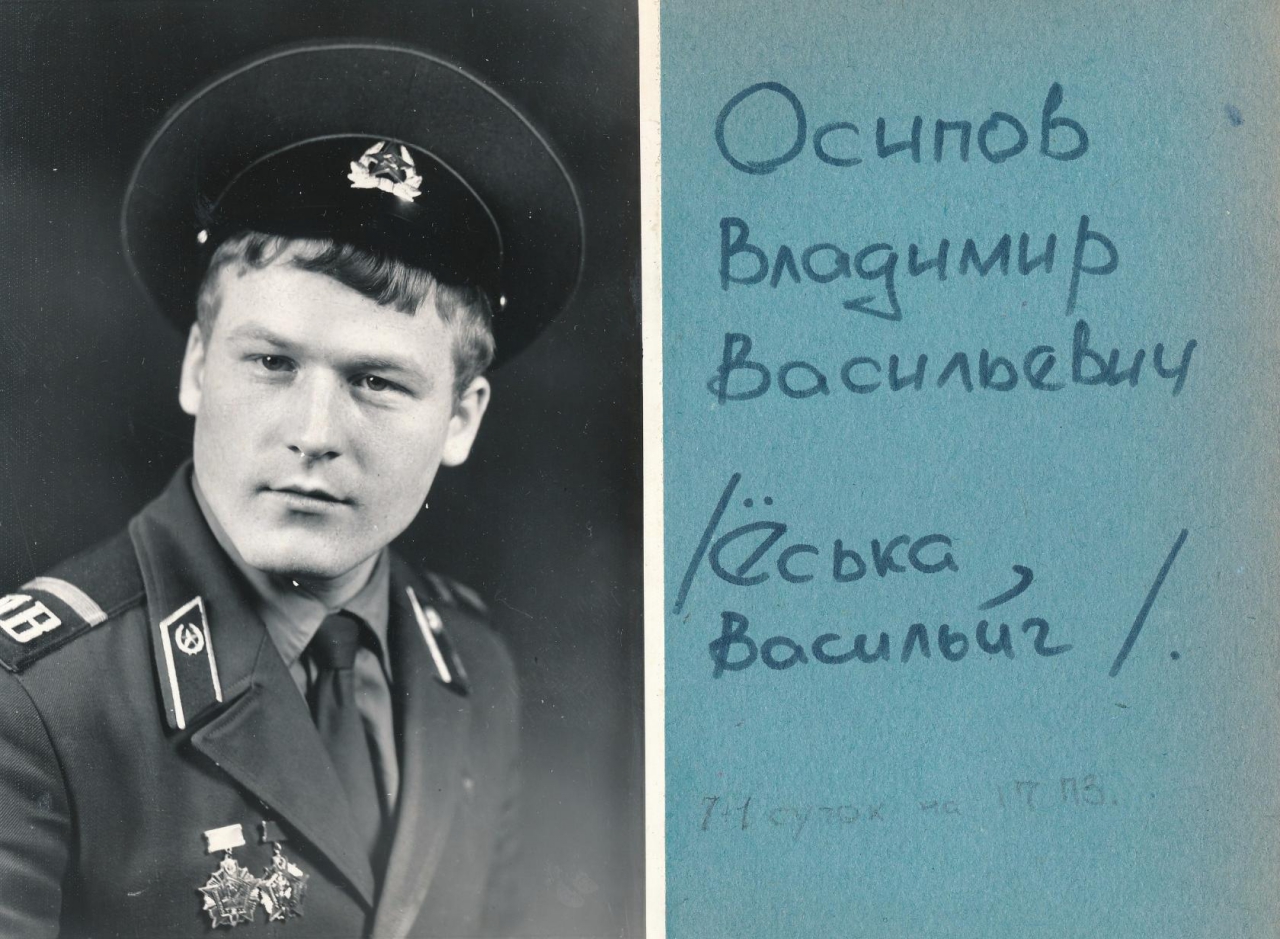 ПВ
Осипов
Владимир
Васильевич
/Ёська,
Васильич/.
суток на 17 ПЗ.